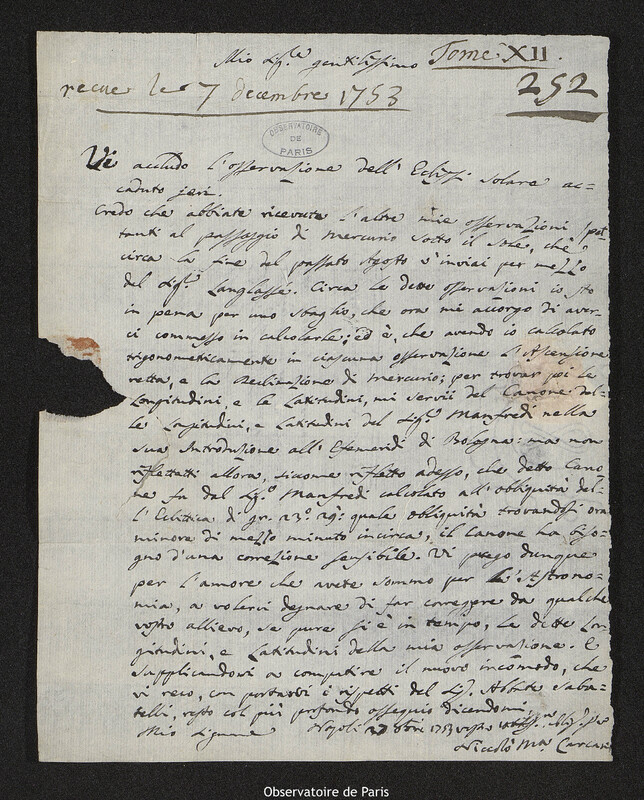 Mio Sig.re gentilissimo Tome XII.
252
recue le 7 decembre 1753
OBSERVATOIRE
DE
PARIS
Vi accludo l'osservazione dell' Eclissi solare ac=
caduto jeri.
Credo che abbiate ricevute l'altre mie osservazioni spet=
tanti al passaggio di Mercurio sotto il Sole, che
circa la fine del passato Agosto v'inviai per mezzo
del Sig.r Langlassé. Circa le dette osservazioni io sto
in pena per uno sbaglio, che ora mi accorgo di aver=
ci commesso in calcolarle; ed è, che avendo io calcolato
trigonometricamente in ciascuna osservazione l'Ascensione
retta, e la Declinazione di Mercurio; per trovar poi le
Longitudini, e le Latitudini, mi servii del Canone del=
le Longitudini, e Latitudini del Sig.r Manfredi nella
sua Introduzione all' Efemeridi di Bologna: ma non
riflettetti allora, siccome rifletto adesso, che detto Cano=
ne fu dal Sig.r Manfredi calcolato all' obliquità del=
l'Eclittica di gr. 23.° 29': quale obliquità trovandosi ora
minore di mezzo minuto incirca, il Canone ha biso=
gno d'una correzione sensibile. Vi prego dunque
per l'amore che avete sommo per l'Astrono=
mia, a volervi degnare di far correggere da qualche
vostro allievo, se pure si è in tempo, le dette Lon=
gitudini, e Latitudini della mia osservazione. E
supplicandovi a compatire il nuovo incomodo, che
vi reco, con portarvi i rispetti del Sig. Abbate Saba=
telli, resto col più profondo ossequio dicendomi
Mio Signore Napoli 27 8bre 1753 vostro
Niccolò M.a Carcani
Observatoire de Paris